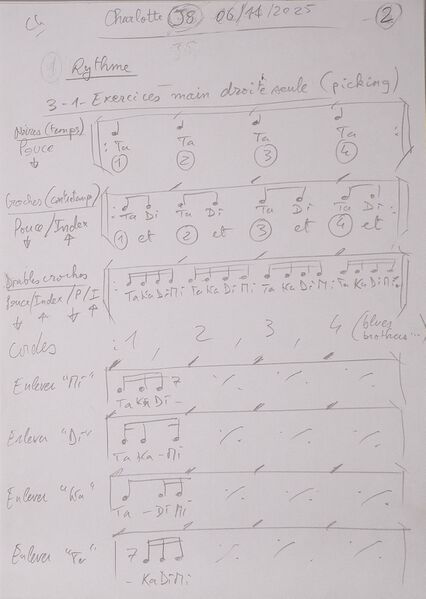 Ch Charlotte 38 06/11/2025 2
35
1 Rythme
3-1- Exercices main droite seule (picking)
Noires (temps)
Pouce
Ta Ta Ta Ta
1 2 3 4
Croches (contretemp)
Pouce/Index
Ta Di Ta Di Ta Di Ta Di
1 et 2 et 3 et 4 et
Doubles croches
Pouce/Index/P/I
Ta Ka Di Mi Ta Ka Di Mi Ta Ka Di Mi Ta Ka Di Mi
Cordes : 1, 2, 3, 4 (blues brothers...)
Enlever "Mi"
Ta Ka Di -
Enlever "Di"
Ta Ka - Mi
Enlever "Ka"
Ta - Di Mi
Enlever "Ta"
- Ka Di Mi